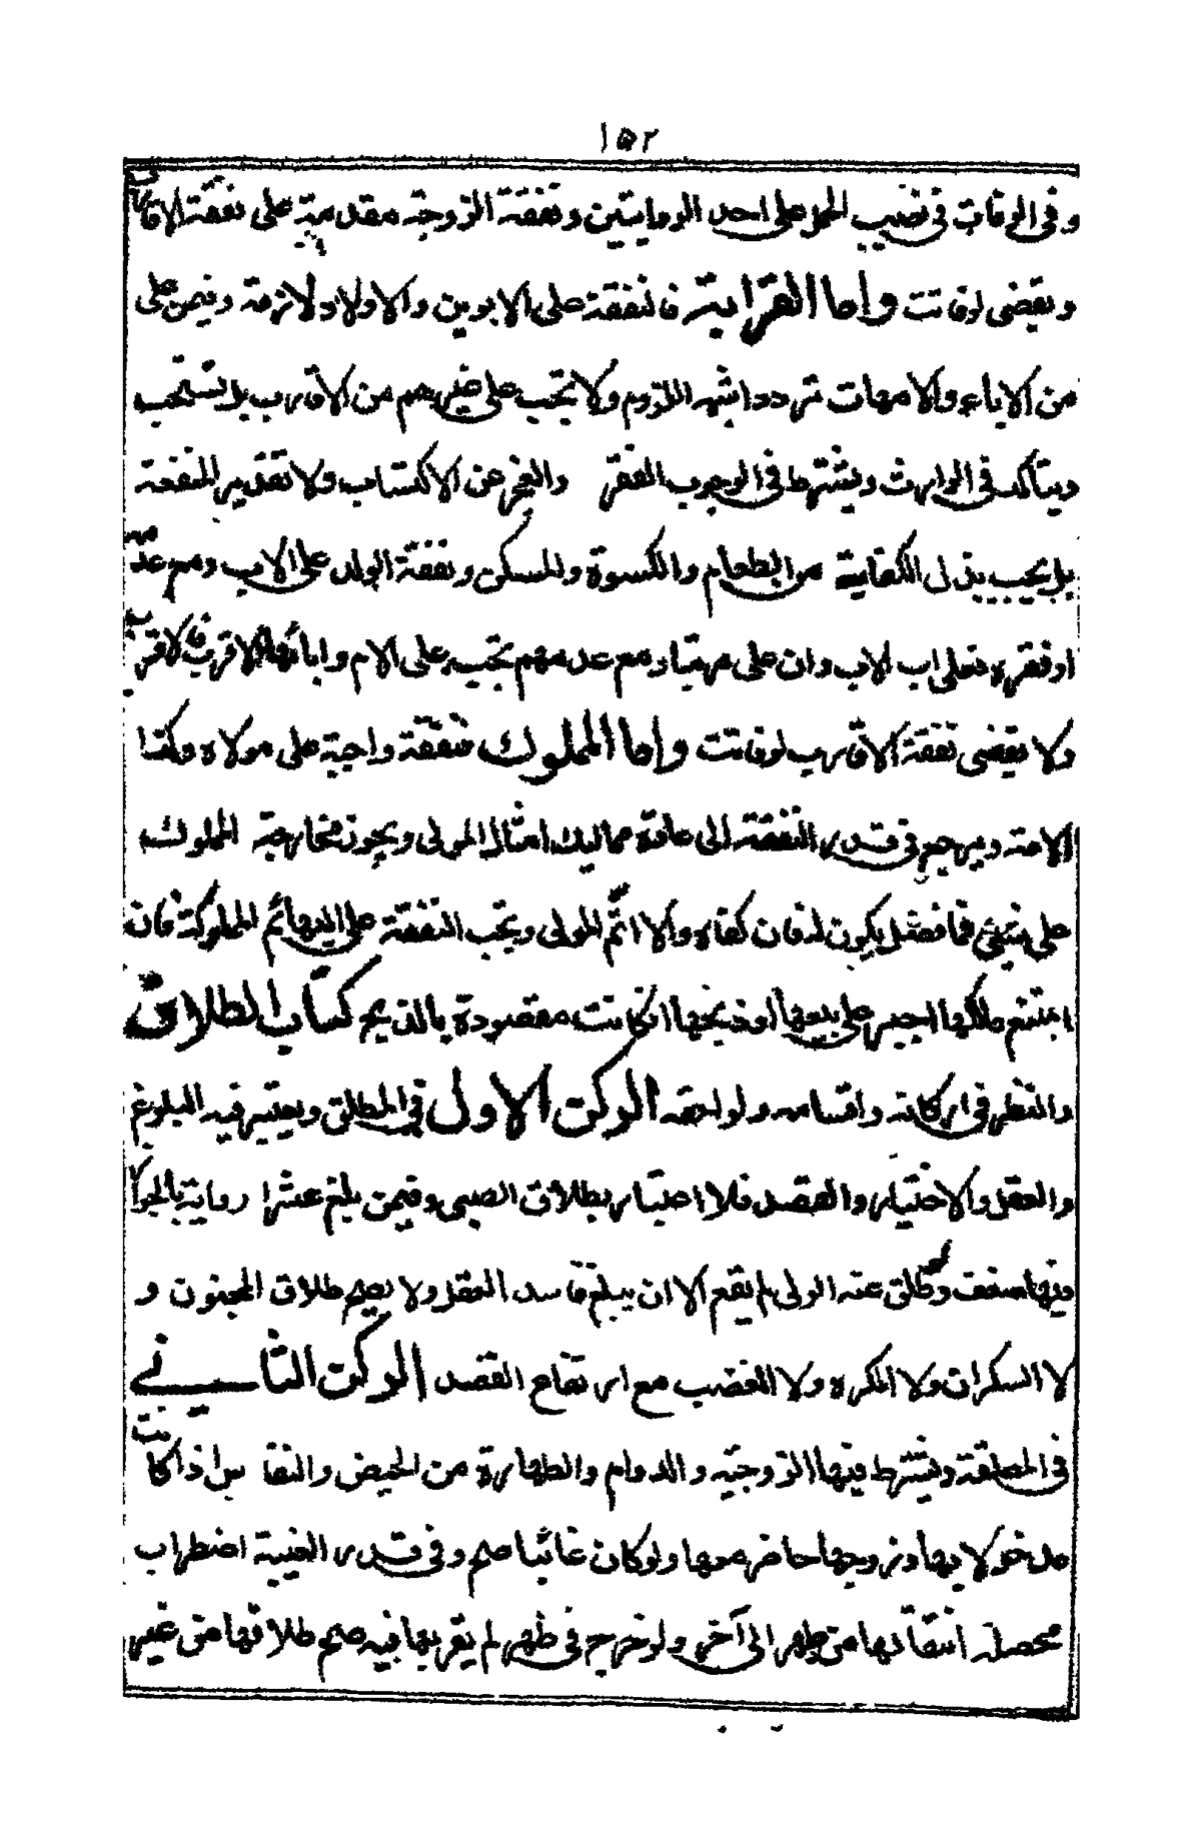 ١٥٢
وفى الوفات فى نصيب الحمل على احد الروايتين ونفقة الزوجة مقدمة على نفقة الاقارب
وتقضى لو فاتت واما القرابة فالنفقة على الابوين والاولاد لازمة وفيمن على
من الاباء والامهات تردد اشبهه اللزوم ولا تجب على غيرهم من الاقارب بل تستحب
ويتأكد فى الوارث ويشترط فى الوجوب الفقر والعجز عن الاكتساب ولا تقدير للنفقة
بل يجب بذل الكفاية من الطعام والكسوة والمسكن ونفقة الولد على الاب ومع عدمه
او فقره فعلى اب الاب وان على مرتبا ومع عدمهم تجب على الام وابائها الاقرب فالاقرب
ولا تقضى نفقة الاقارب لو فاتت واما المملوك فنفقته واجبة على مولاه وكذا
الامة ويرجع فى قدر النفقة الى عادة مماليك امثال المولى ويجوز مخارجة المملوك
على شيئ فما فضل يكون له فان كفاه والا اتمّ المولى وتجب النفقة على البهائم المملوكة فان
امتنع مالكها اجبر على بيعها او ذبحها ان كانت مقصودة بالذبح كتاب الطلاق
والنظر فى اركانه واقسامه ولواحقه الركن الاول فى المطلق ويعتبر فيه البلوغ
والعقل والاختيار والقصد فلا اعتبار بطلاق الصبى وفيمن بلغ عشرا رواية بالجواز
وفيها ضعف ولو طلق عنه الولى لم يقع الا ان يبلغ فاسد العقل ولا يصح طلاق المجنون و
لا السكران ولا المكره ولا المغضب مع ارتفاع القصد الركن الثانى
فى المطلقة ويشترط فيها الزوجيّة والدوام والطهارة من الحيض والنفاس اذا كانت
مدخولا بها وزوجها حاضر معها ولو كان غائبا صح وفى قدر الغيبة اضطراب
محصله انتقالها من طهر الى آخر ولو خرج فى طهر لم يقربها فيه صح طلاقها من غير